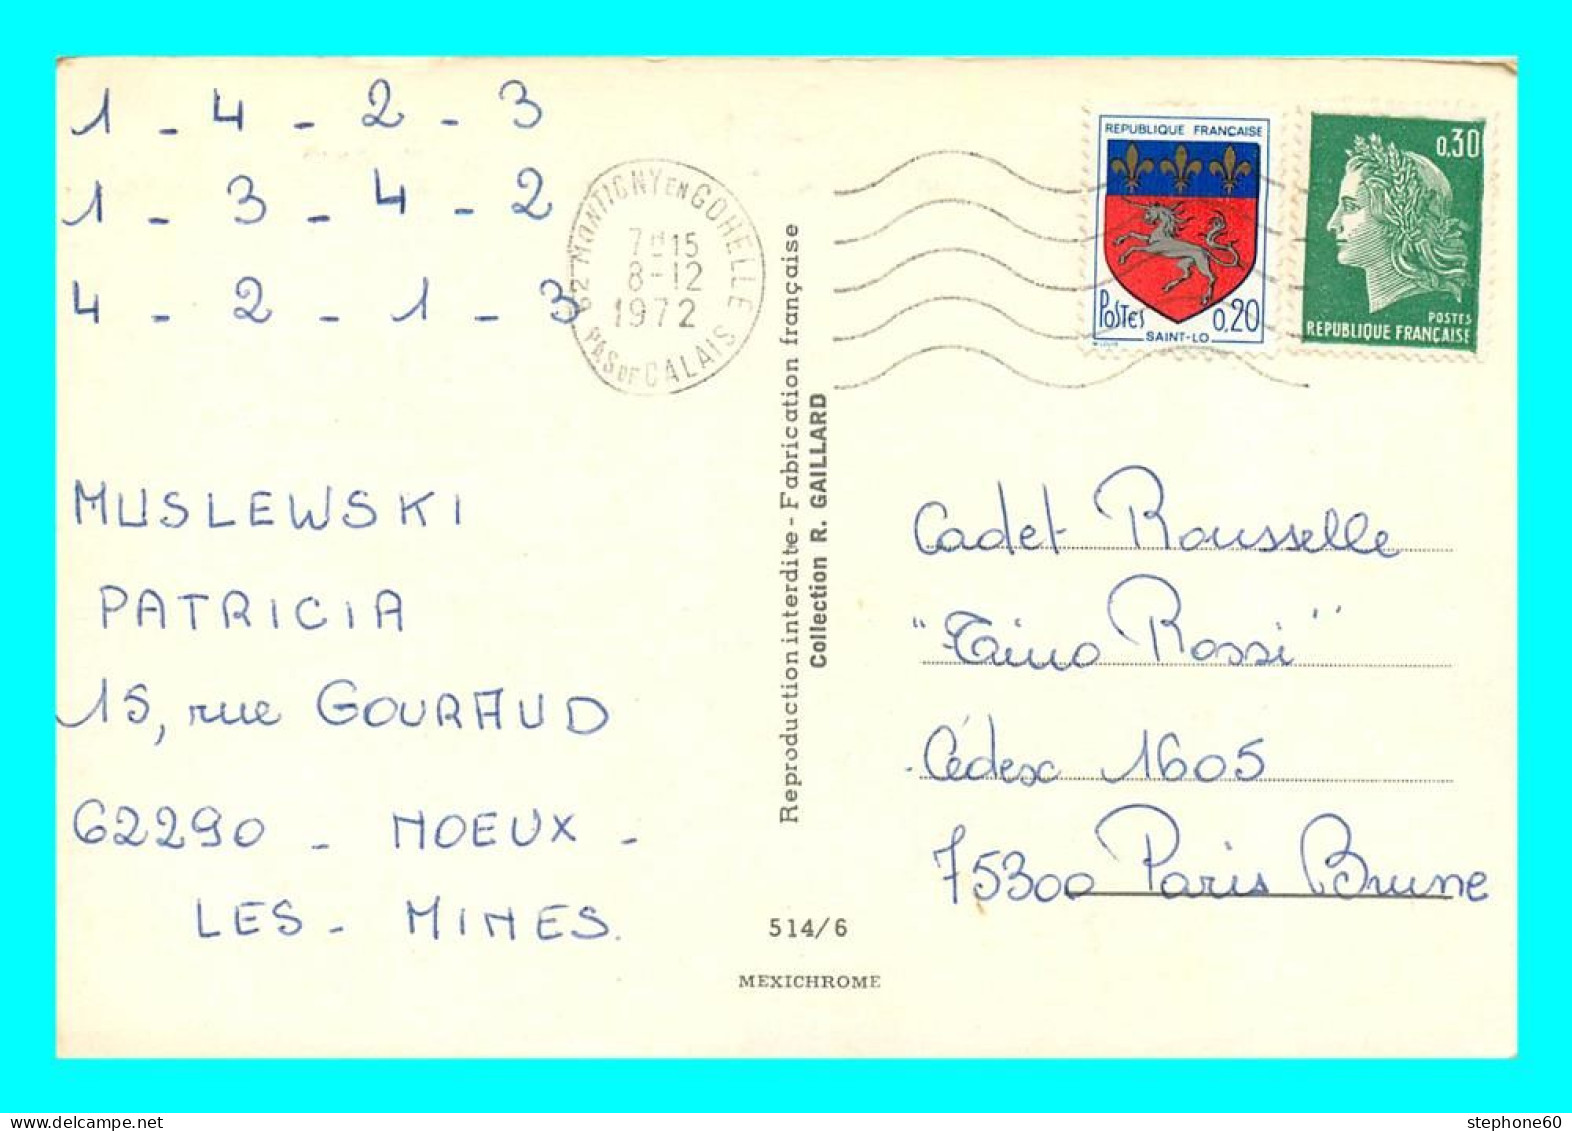 1 - 4 - 2 - 3
1 - 3 - 4 - 2
4 - 2 - 1 - 3
MUSLEWSKI
PATRICIA
15, rue GOURAUD
62290 - NOEUX -
LES - MINES.
62 MONTIGNY EN GOHELLE
7H15
8-12
1972
PAS DE CALAIS
Reproduction interdite - Fabrication française
Collection R. GAILLARD
514/6
MEXICHROME
REPUBLIQUE FRANÇAISE
POSTES 0,20
SAINT-LO
0,30
POSTES
REPUBLIQUE FRANÇAISE
Cadet Rousselle
"Tino Rossi"
Cédex 1605
75300 Paris Brune
stephone60